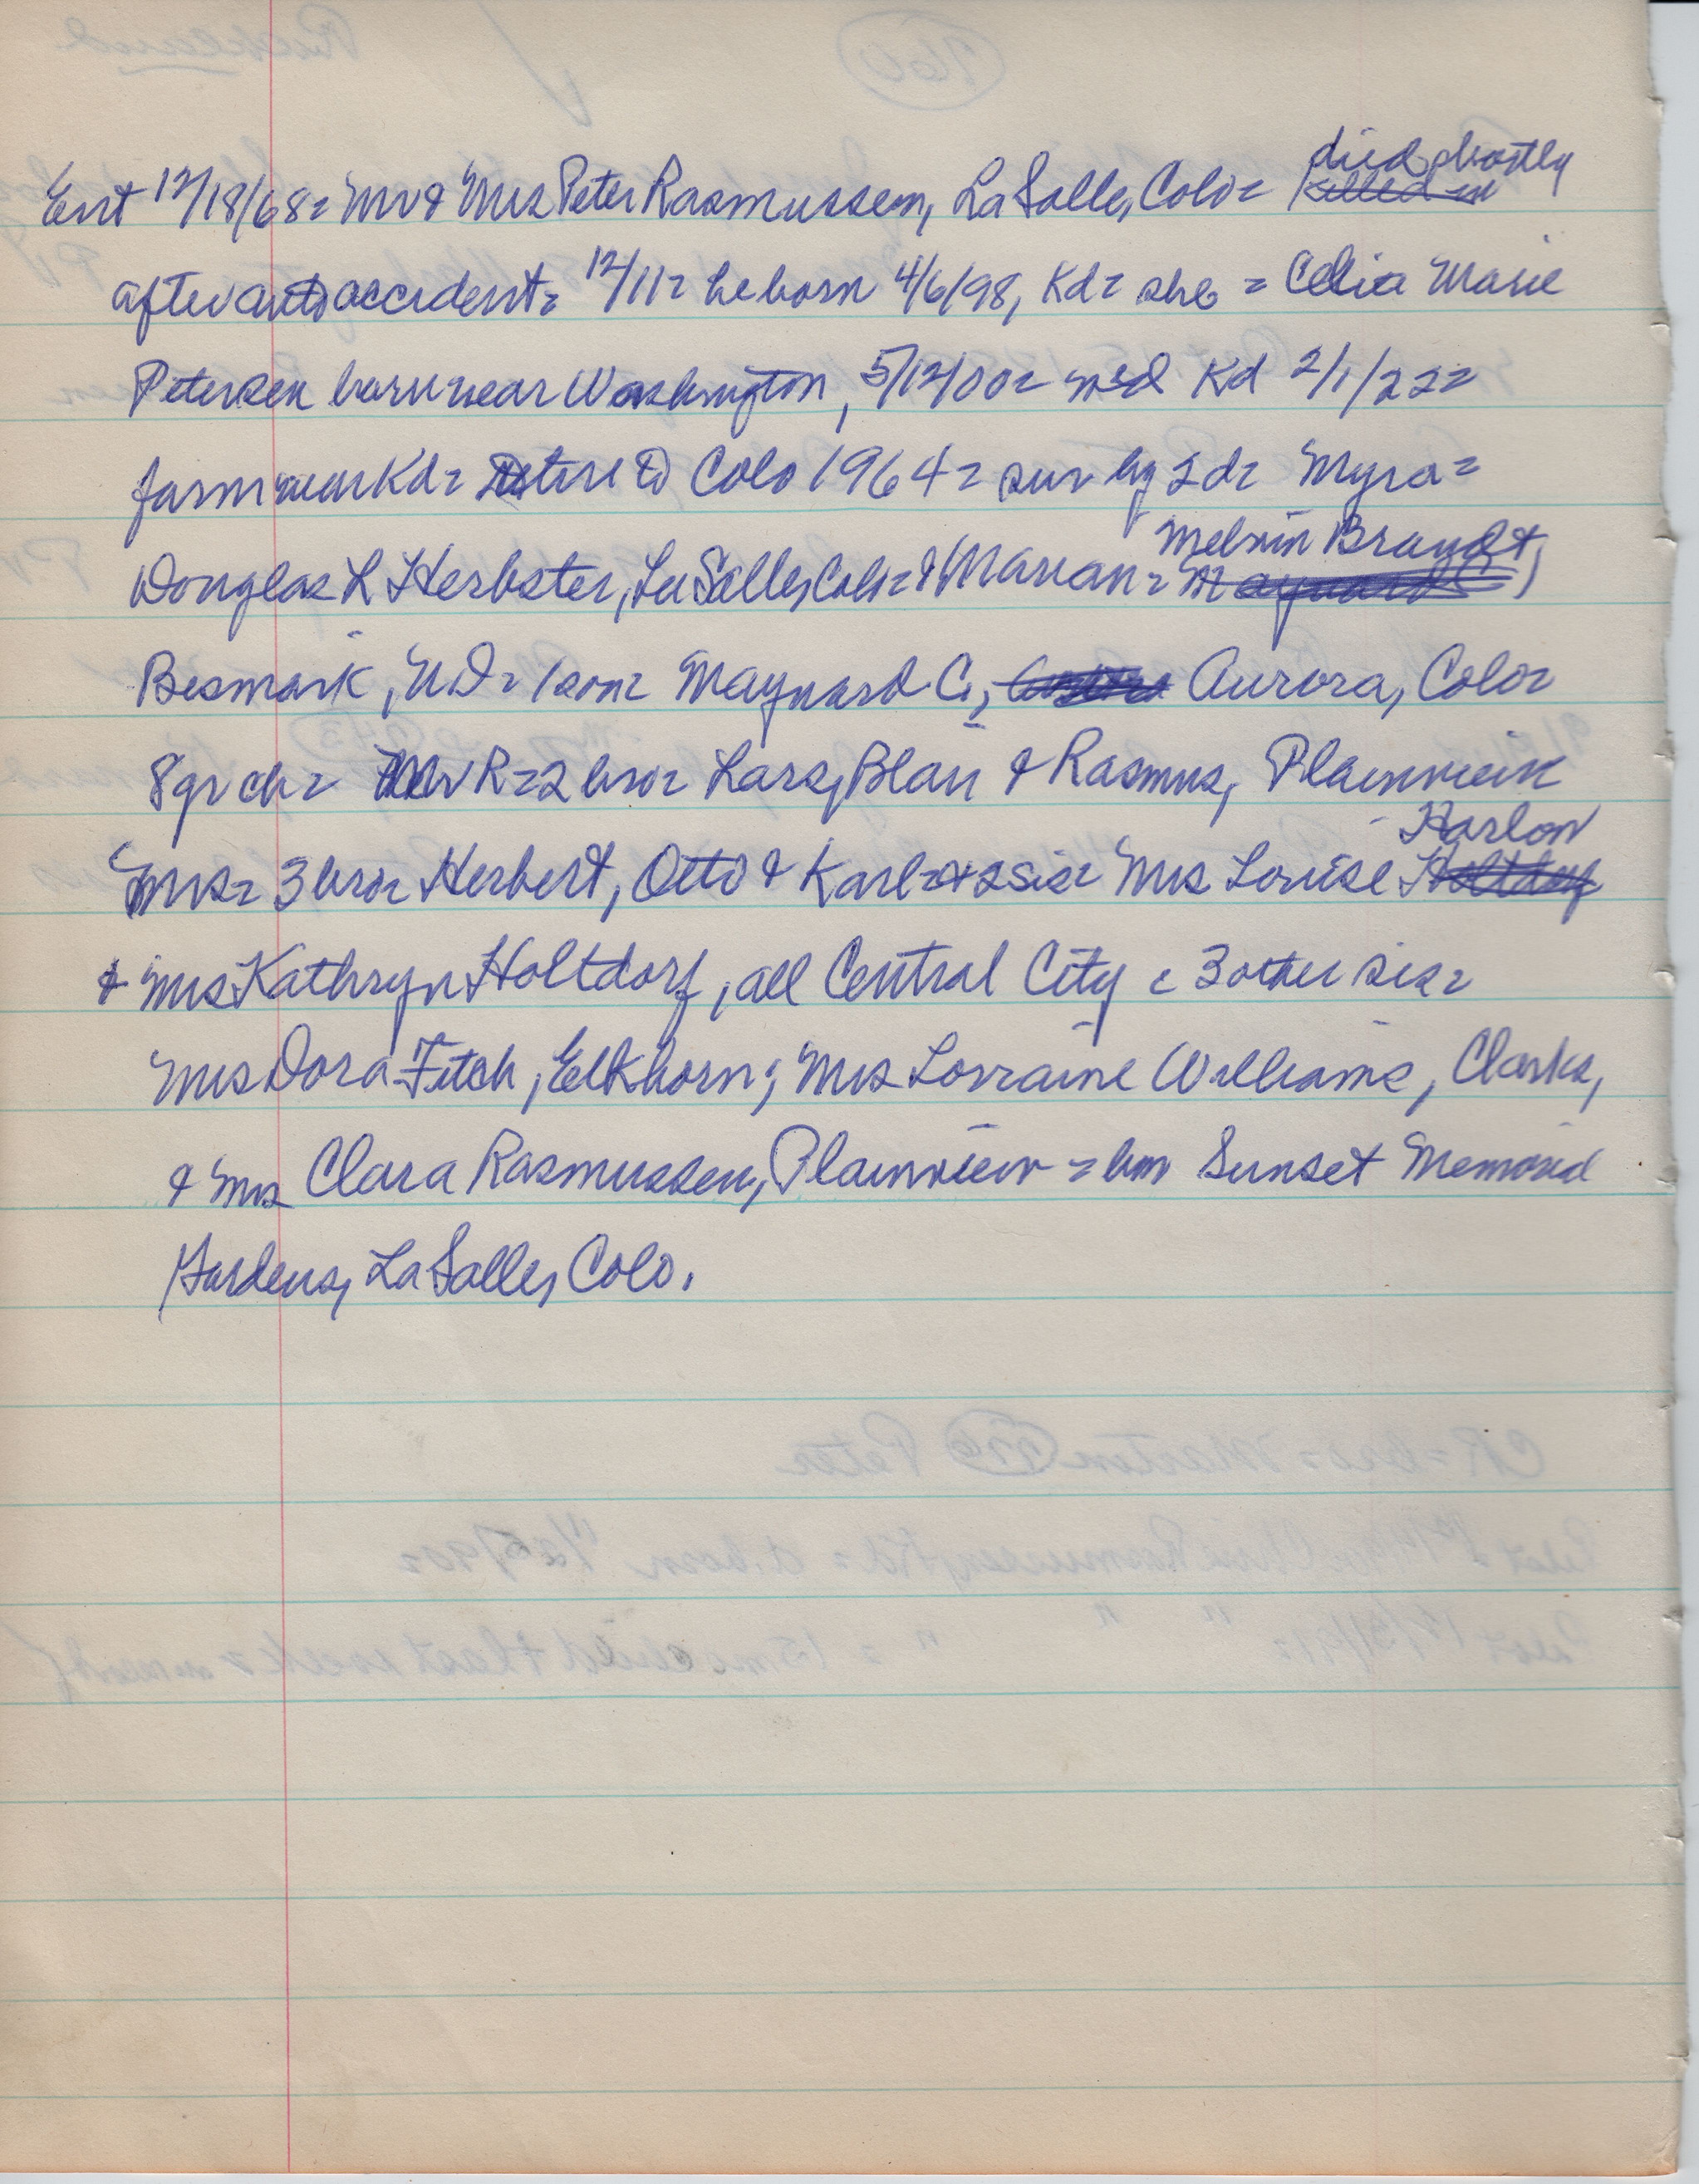 Ent 12/18/68= Mr & Mrs Peter Rasmussen, LaSalle, Colo= died shortly
after auto accident= 12/11= he born 4/6/98, Kd= she = Celia Marie
Petersen born near Washington, 5/12/00= md Kd 2/1/22=
farm near Kd= retire to Colo 1964= sur by 2d= Myra=
Douglas L Herbster, LaSalle, Colo= & Marian= Melvin Brandt,
Bismark, N.D= 1 son= Maynard C, Aurora, Colo=
8 gr ch= Mr R=2 bro= Lars, Blair & Rasmus, Plainview
Mrs= 3 bro= Herbert, Otto & Karl= & 2 sis= Mrs Louise Harlow
& Mrs Kathryn Holtdorf, all Central City = 3 other sis=
Mrs Dora Fitch, Elkhorn; Mrs Lorraine Williams, Clarks,
& Mrs Clara Rasmussen, Plainview = bur Sunset Memorial
Gardens, LaSalle, Colo.